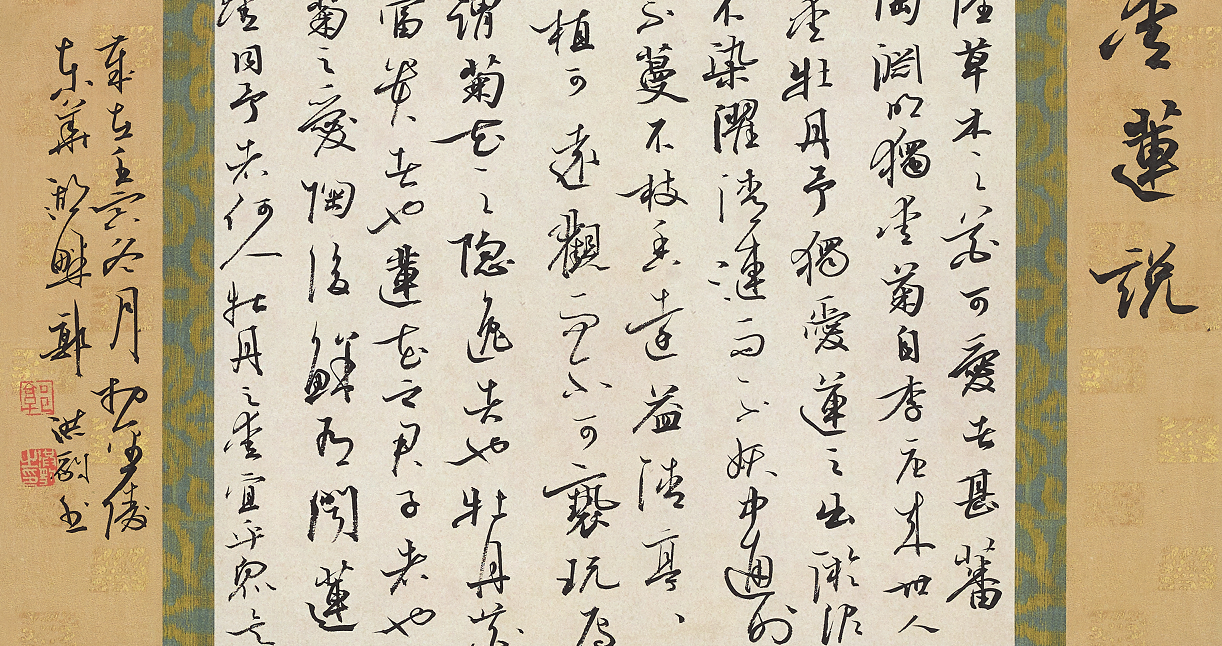 愛蓮說
陸草木之花可愛者甚蕃
陶淵明獨愛菊自李唐來世人
愛牡丹予獨愛蓮之出淤泥
不染濯清漣而不妖中通外
不蔓不枝香遠益清亭亭
植可遠觀而不可褻玩焉
謂菊花之隱逸者也牡丹花
富貴者也蓮花之君子者也
菊之愛陶後鮮有聞蓮
愛同予者何人牡丹之愛宜乎眾矣
歲在壬寅冬月於金陵
東華湖畔郭洪书